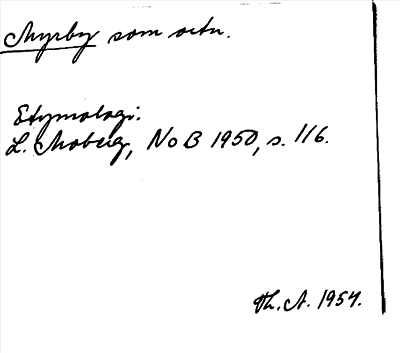 Myrby som ortn.
Etymologi:
L. Moberg, NoB 1950, s. 116.
Th. A. 1954.